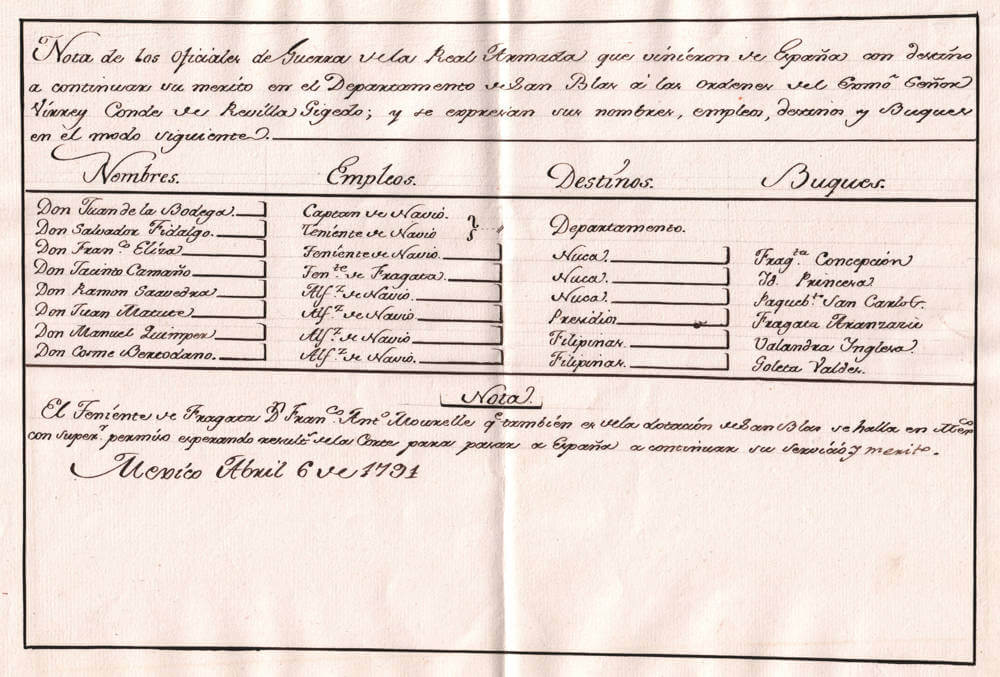 Nota de los Oficiales de Guerra de la Real Armada que vinieron de España con destino
a continuar su merito en el Departamento de San Blas á las Ordenes del Exmõ Señor
Virrey Conde de Revilla Gigedo; y se expresan sus nombres, empleos, destinos y Buques
en el modo siguiente.
Nombres. Empleos. Destinos. Buques.
Don Juan de la Bodega. Captan de Navio.
Don Salvador Fidalgo. Teniente de Navio Departamento.
Don Fran.co Eliza Teniente de Navio. Nuca. Frag.ta Concepción
Don Jacinto Camaño Ten.te de Fragata. Nuca. Id. Princesa
Don Ramon Saavedra Alf.z de Navio. Nuca. Paqueb.te San Carlos.
Don Juan Matute Alf.z de Navio. Presidios Fragata Aranzazu
Don Manuel Quimper Alf.z de Navio. Filipinas. Valandra Ynglesa.
Don Cosme Bertodano. Alf.z de Navio. Filipinas. Goleta Valdes.
Nota.
El Teniente de Fragata Dn Fran.co Ant.o Mourelle q.e también es de la dotación de San Blas se halla en
con super.r permiso esperando result.s de la Corte para pasar a España a continuar su servicio y merito.
Mexico Abril 6 de 1791